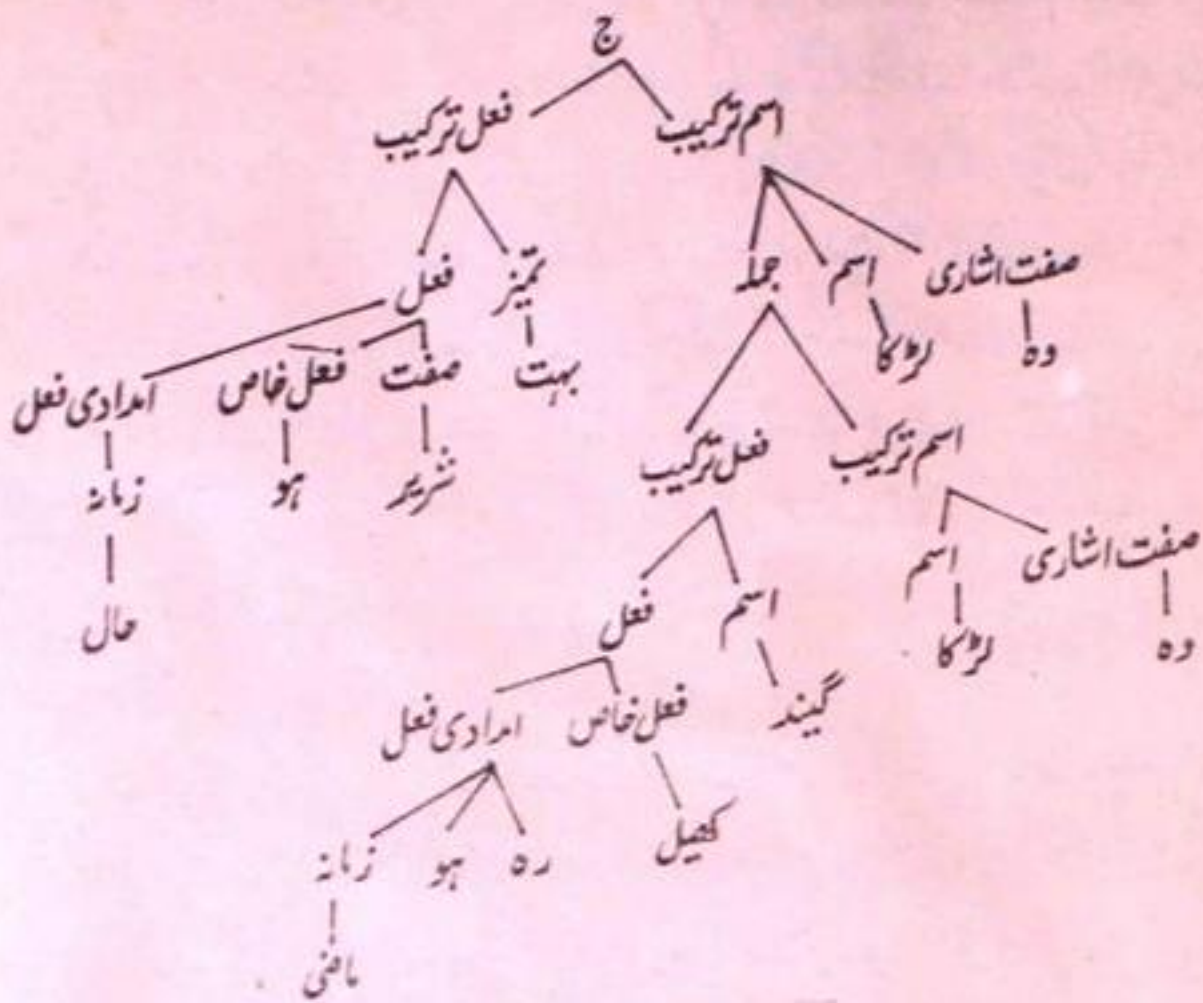 ج
اسم ترکیب فعل ترکیب
صفت اشاری اسم جملہ تمیز فعل
وہ لڑکا بہت صفت فعل خاص امدادی فعل
اسم ترکیب فعل ترکیب شریر ہو زمانہ
صفت اشاری اسم اسم فعل حال
وہ لڑکا گیند فعل خاص امدادی فعل
کھیل رہ ہو زمانہ
ماضی